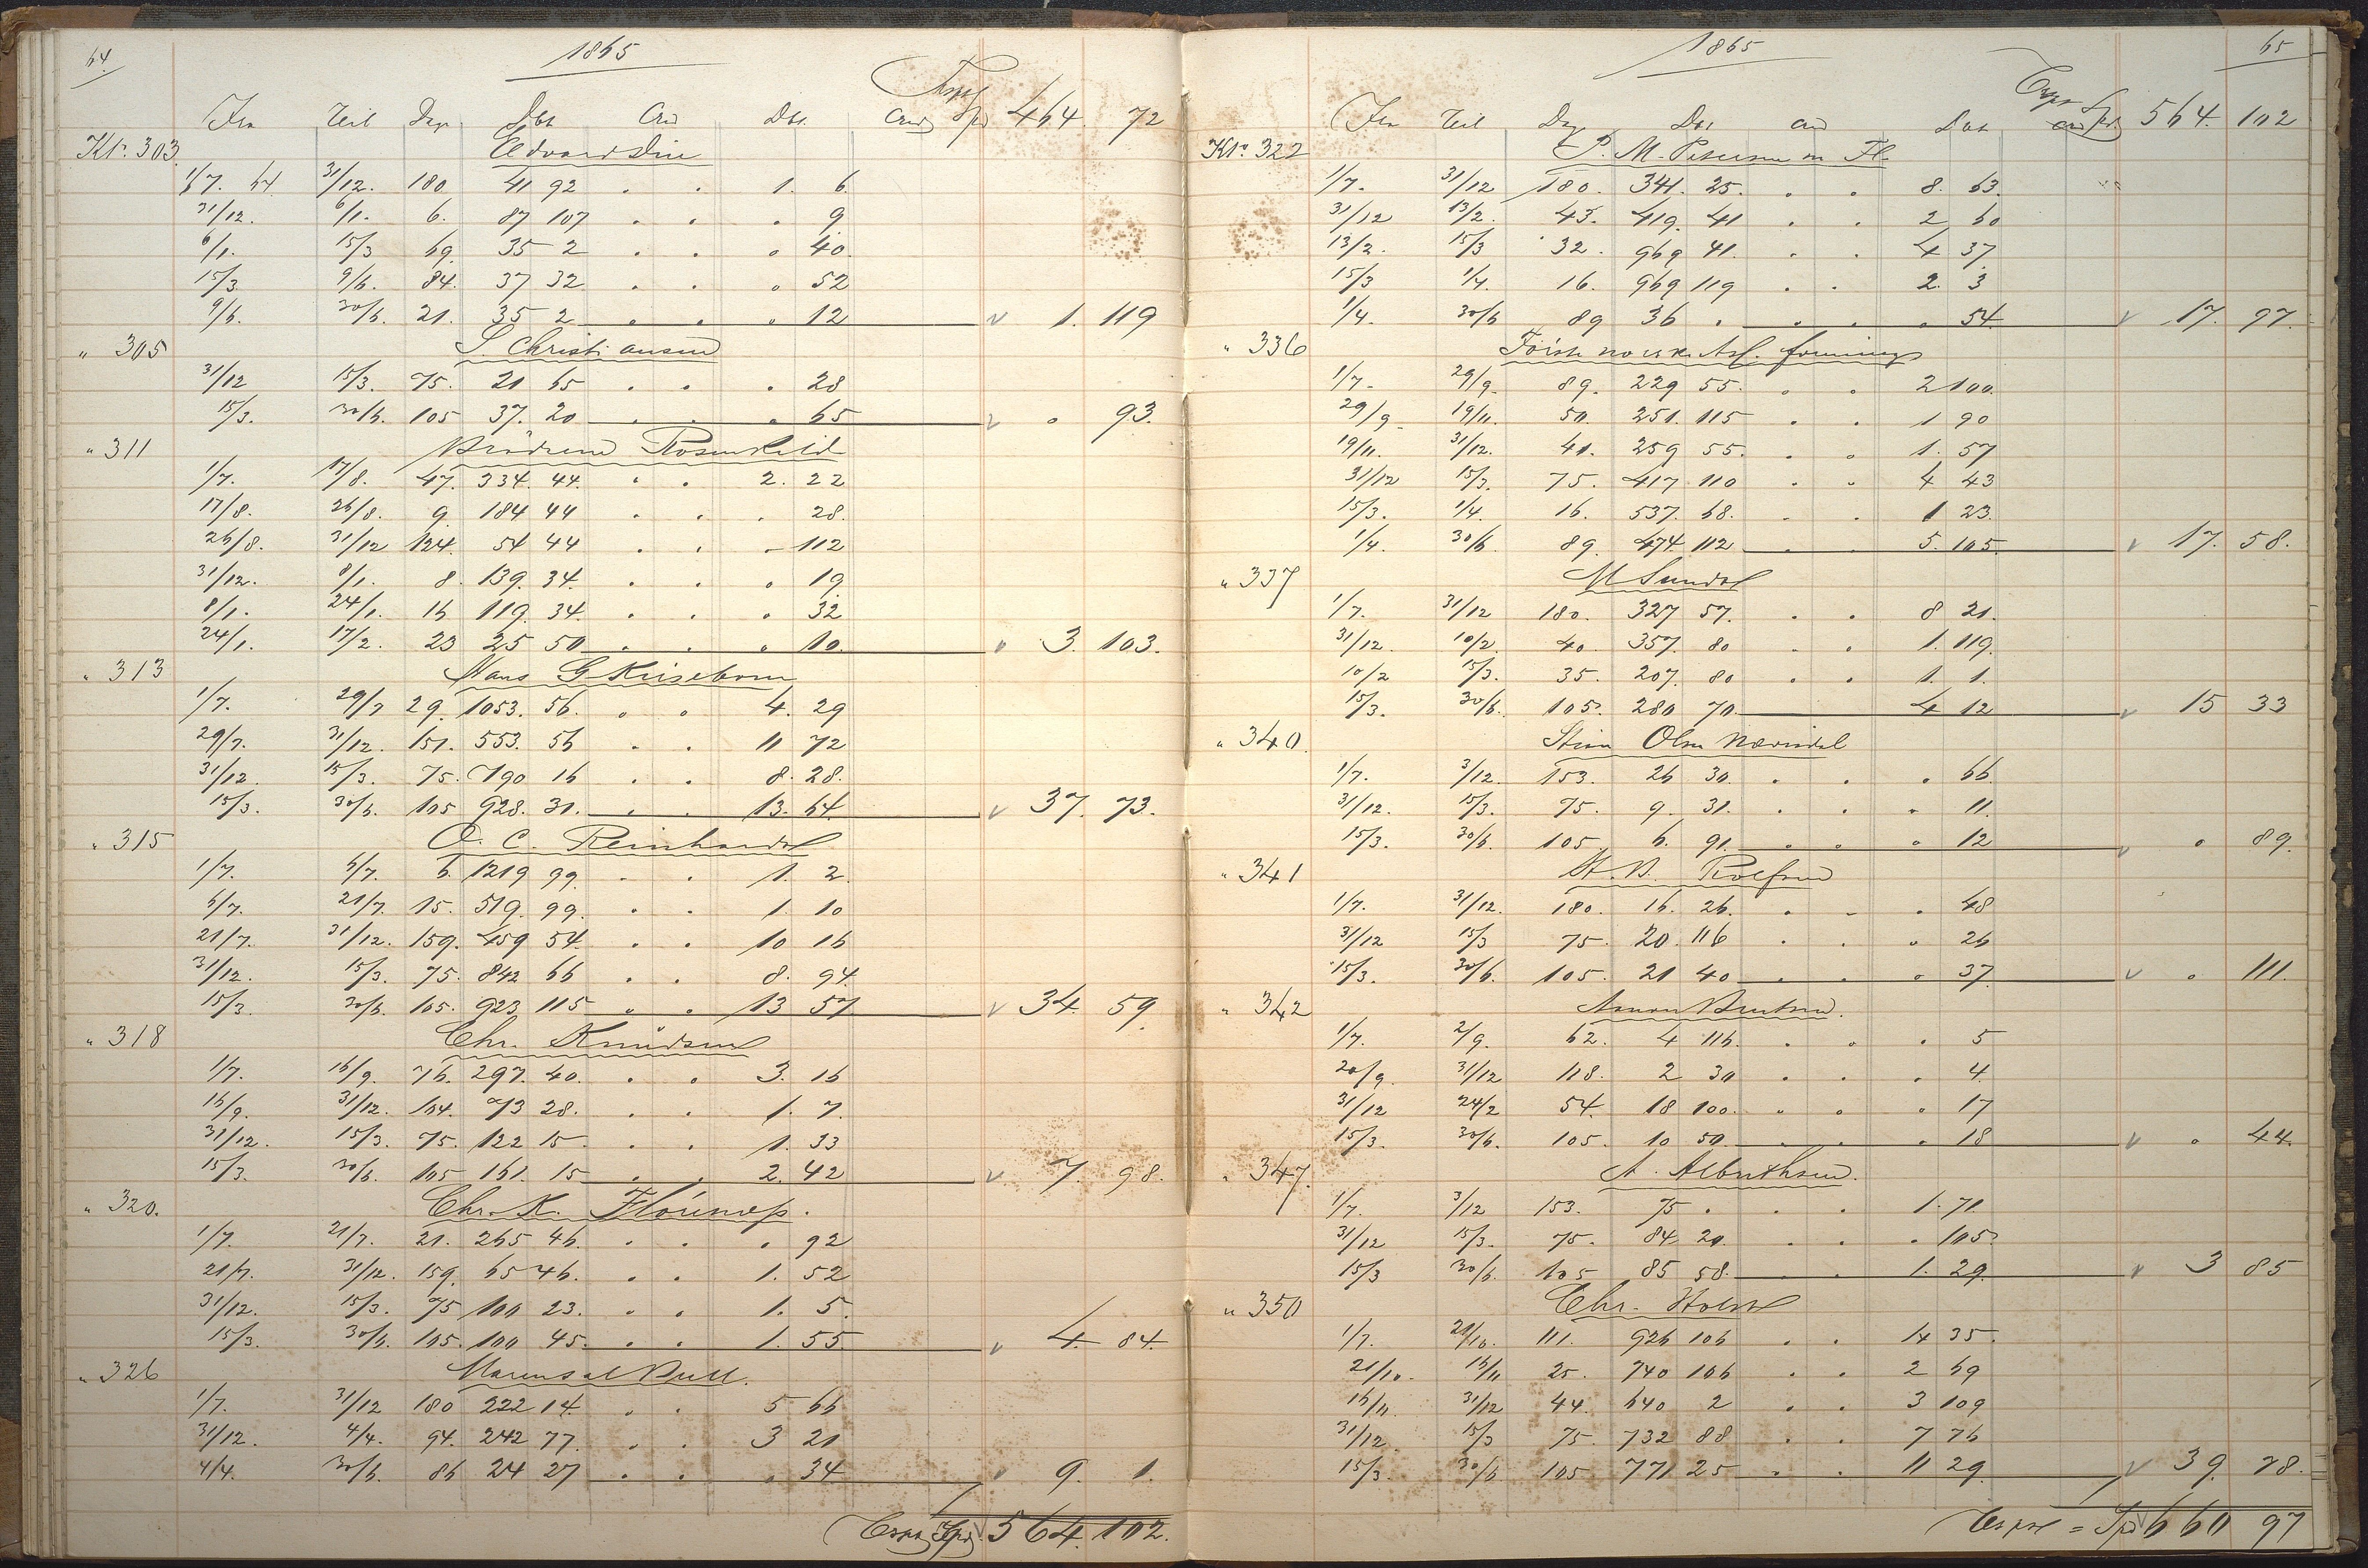 64.
1865
Fra Teil Dag Deb Cred Deb. Cred Spd 464. 72
Kto. 303.
1/7. 64 31/12. 180. 41 92 . . 1. 6.
31/12. 6/1. 6. 87 107 . . . 9
6/1. 15/3 69. 35 2 . . . 40.
15/3. 9/6. 84. 37 32 . . . 52
9/6. 30/6. 21. 35 2 . . . 12 v 1. 119
" 305 S. Christiansen
31/12 15/3. 75. 21 65 . . . 28
15/3. 30/6. 105 37. 20 . . . 65 v . 93.
" 311 Brödrene Rosenkild
1/7. 17/8. 47. 334. 44. . . 2. 22
17/8. 26/8. 9 184 44 . . . 28.
26/8. 31/12 124. 54 44 . . - 112
31/12. 8/1. 8. 139. 34. . . . 19
8/1. 24/1. 16 119. 34. . . . 32
24/1. 17/2. 23 25 50 . . . 10. v 3. 103.
" 313 Hans G
1/7. 29/7 29. 1053. 56. . . 4. 29
29/7. 31/12. 151. 553. 56 . . 11 72
31/12. 15/3. 75. 790 16 . . 8. 28.
15/3. 30/6. 105 928. 31. . . 13. 64. v 37. 73.
" 315 O. C. Reinhardt
1/7. 6/7. 6. 1219 99. . . 1. 2.
6/7. 21/7. 15. 519. 99. . . 1. 10
21/7. 31/12. 159. 459 54. . . 10 16
31/12. 15/3. 75. 842 66 . . 8. 94.
15/3. 30/6. 105. 923 115 . . 13 57 v 34. 59.
" 318 Chr. Knudsen
1/7. 16/9. 76. 297. 40. . . 3. 16
16/9. 31/12. 104. 73 28. . . 1. 7.
31/12. 15/3. 75. 122 15 . . 1. 33
15/3. 30/6. 105 161. 15 . . 2. 42 v 7. 98.
" 320. Chr. K.
1/7. 21/7. 21. 265 46. . . . 92
21/7. 31/12. 159. 65 46. . . 1. 52
31/12. 15/3. 75 100 23. . . 1. 5.
15/3. 30/6. 105. 100 45. . . 1. 55. v 4. 84.
" 326 Bull.
1/7. 31/12 180 222 14. . . 5 66
31/12. 4/4. 94. 242 77. . . 3 21
4/4. 30/6. 86 24 27 . . . 34 v 9. 1.
Spd 564. 102.
1865
65
Fra Teil Dag Deb Cred Deb Cred Spd 564. 102
Kto. 322 P. M. Petersen m Fl.
1/7. 31/12 180. 341. 25. . . 8. 63.
31/12 13/2. 43. 419. 41 . . 2 60
13/2. 15/3 32. 969 41. . . 4 37
15/3 1/4. 16. 969 119 . . 2. 3
1/4. 30/6 89 36 . . . . 54. v 17. 97.
" 336 norske
1/7. 29/9. 89. 229 55. . . 2 100.
29/9. 19/11. 50. 251. 115 . . 1 90
19/11. 31/12. 41. 259 55. . . 1. 57
31/12 15/3. 75. 417 110 . . 4 43
15/3. 1/4. 16. 537. 68. . . 1 23.
1/4. 30/6. 89. 474 112 . 5. 105. v 17. 58.
" 337 M Sundt
1/7. 31/12 180. 327 57. . . 8 21.
31/12. 10/2. 40. 357. 80 . . 1. 119.
10/2 15/3. 35. 207. 80 . . 1. 1.
15/3. 30/6. 105. 280 70. 4 12 v 15 33
" 340. Olsen
1/7. 3/12. 153. 26 30 . . . 66.
31/12. 15/3. 75. 9. 31. . . . 11.
15/3. 30/6. 105 6. 91. . . . 12 v . 89.
" 341
1/7. 31/12. 180. 16. 26. . - . 48
31/12 15/3 75. 20. 116 . . . 26
15/3. 30/6. 105. 21 40 . . . 37. v . 111.
" 342
1/7. 2/9. 62. 4 116. . . . 5
20/9. 31/12 118. 2 30 . . . 4.
31/12 24/2 54. 18 100. . . . 17
15/3. 30/6. 105. 10 50 . . . 18 v . 44.
" 347. A. Albrethsen.
1/7. 3/12 153. 75 . . . 1. 71.
31/12 15/3. 75. 84 20. . . . 105.
15/3 30/6. 105 85 58. . . 1. 29. v 3 85
" 350 Chr. Holst
1/7. 21/10. 111. 926 106 . . 14 35.
21/10. 16/11 25. 740 106 . . 2 69
16/11. 31/12 44. 640 2 . . 3 109
31/12. 15/3 75. 732 88 . . 7 76
15/3. 30/6 105 771 25 . . 11 29. v 39. 78.
= Spd 660 97